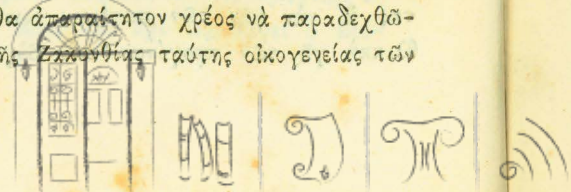 θα ἀπαραίτητον χρέος νὰ παραδεχθῶ-
ῆς Ζακυνθίας ταύτης οἰκογενείας τῶν